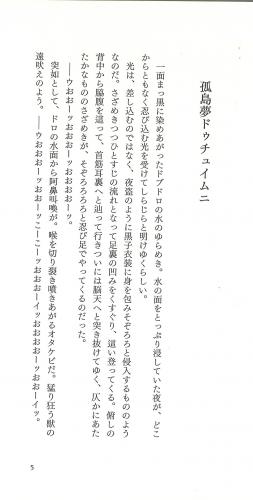 孤島夢ドゥチュイムニ
一面まっ黒に染めあがったドブドロの水のゆらめき。水の面をとっぷり浸していた夜が、どこ
からともなく忍び込む光を受けてしらじらと明けゆくらしい。
光は、差し込むのではなく、夜盗のように黒子衣装に身を包みそぞろと侵入するもののよう
なのだ。さざめきつつひとすじの流れとなって足裏の凹みをくすぐり、這い登ってくる。俯しの
背中から脇腹を這って、首筋耳裏へと辿って行きついには脳天へと突き抜けてゆく、仄かにあた
たかなもののさざめきが、そぞろろろろと忍び足でやってくるのだった。
――ウぉおーッおおおーッおおおおーッ。
突如として、ドロの水面から阿鼻叫喚が。喉を切り裂き噴きあがるオタケビだ。猛り狂う獣の
遠吠えのよう。――ウおおおーッおおーッこーこーッおおおーイッおおおおーッおおーイッ。
5